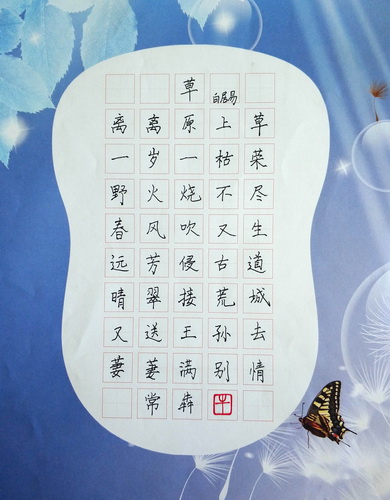 草 白居易
离离原上草
一岁一枯荣
野火烧不尽
春风吹又生
远芳侵古道
晴翠接荒城
又送王孙去
萋萋满别情
常犇